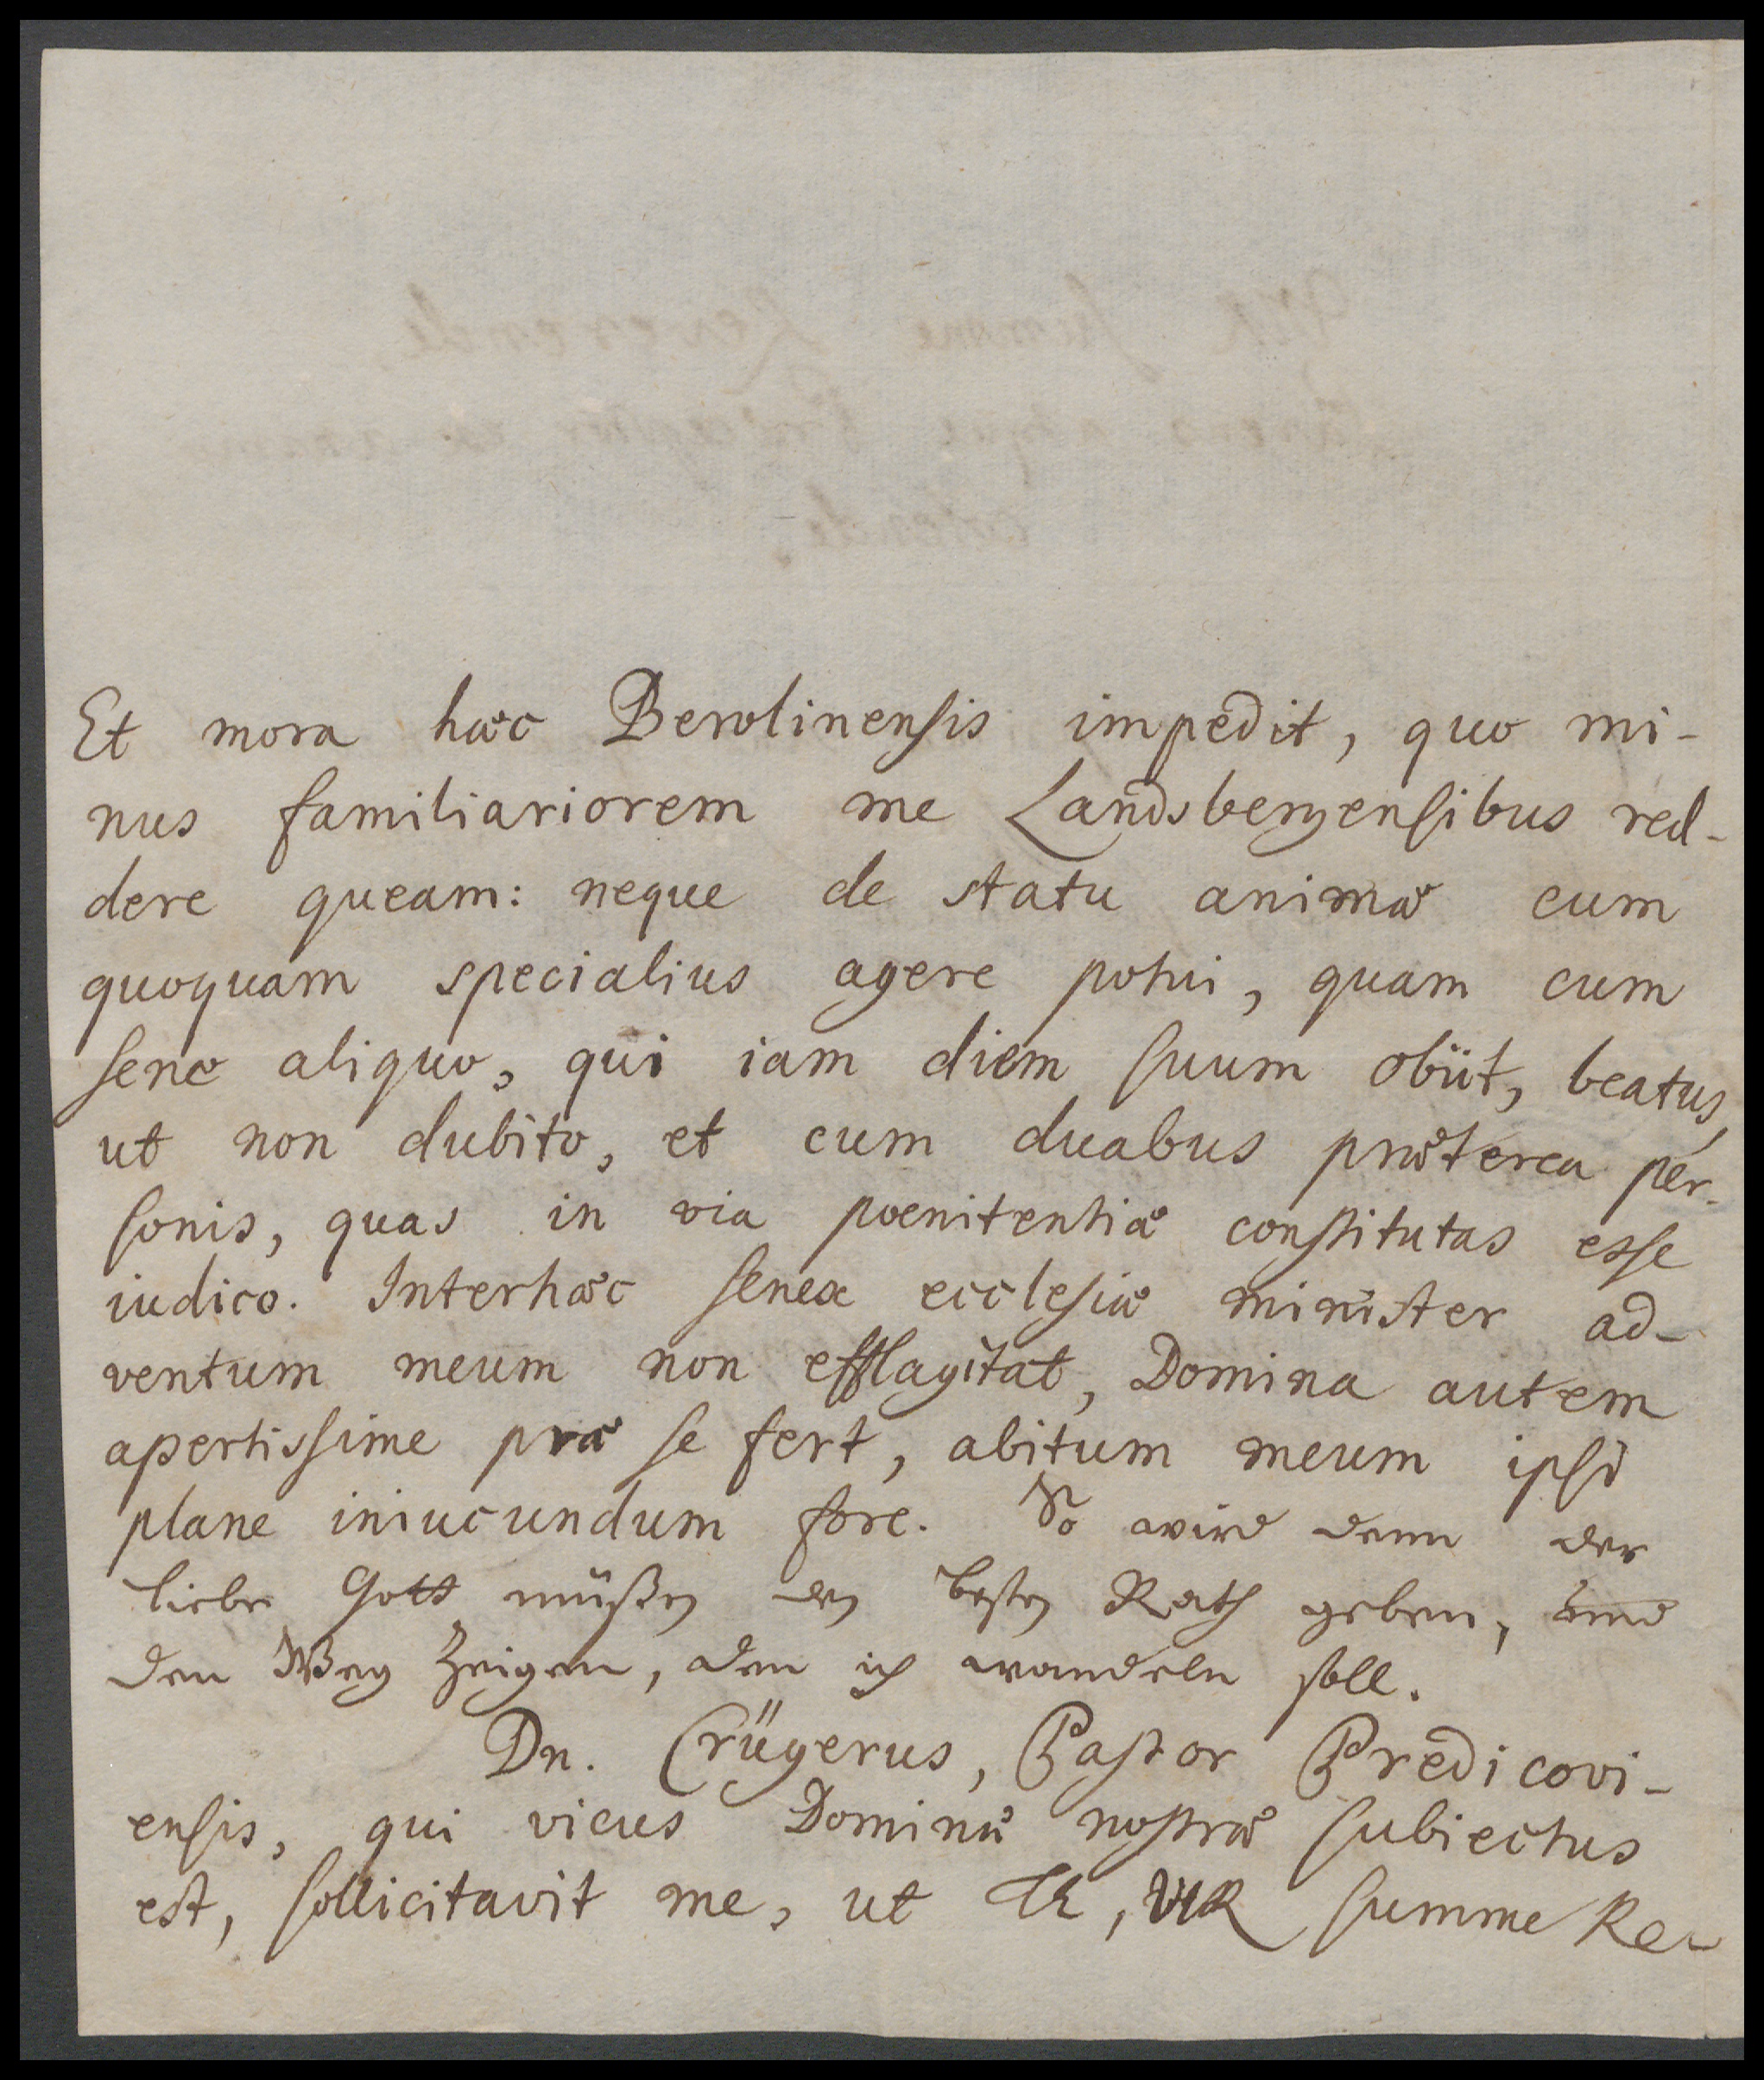 Et mora hæc Berolinensis impedit, quo mi-
nus familiariorem me Landsbergensibus red-
dere queam: neque de statu animæ cum
quoquam specialius agere potui, quam cum
sene aliquo, qui iam diem suum obiit, beatus,
ut non dubito, et cum duabus præterea per-
sonis, quas in via poenitentiæ constitutas esse
iudico. Interhæc senex ecclesiæ minister ad-
ventum meum non efflagitat, Domina autem
apertissime præ se fert, abitum meum ipsi
plane iniucundum fore. So wird denn der
liebe Gott müßen den besten Rath geben, und
den Weg zeigen, den ich wandeln soll.
Dn. Crügerus, Pastor Predicovi-
ensis, qui vicus Dominæ nostræ subiectus
est, sollicitavit me, ut Te, VIR summe Re-